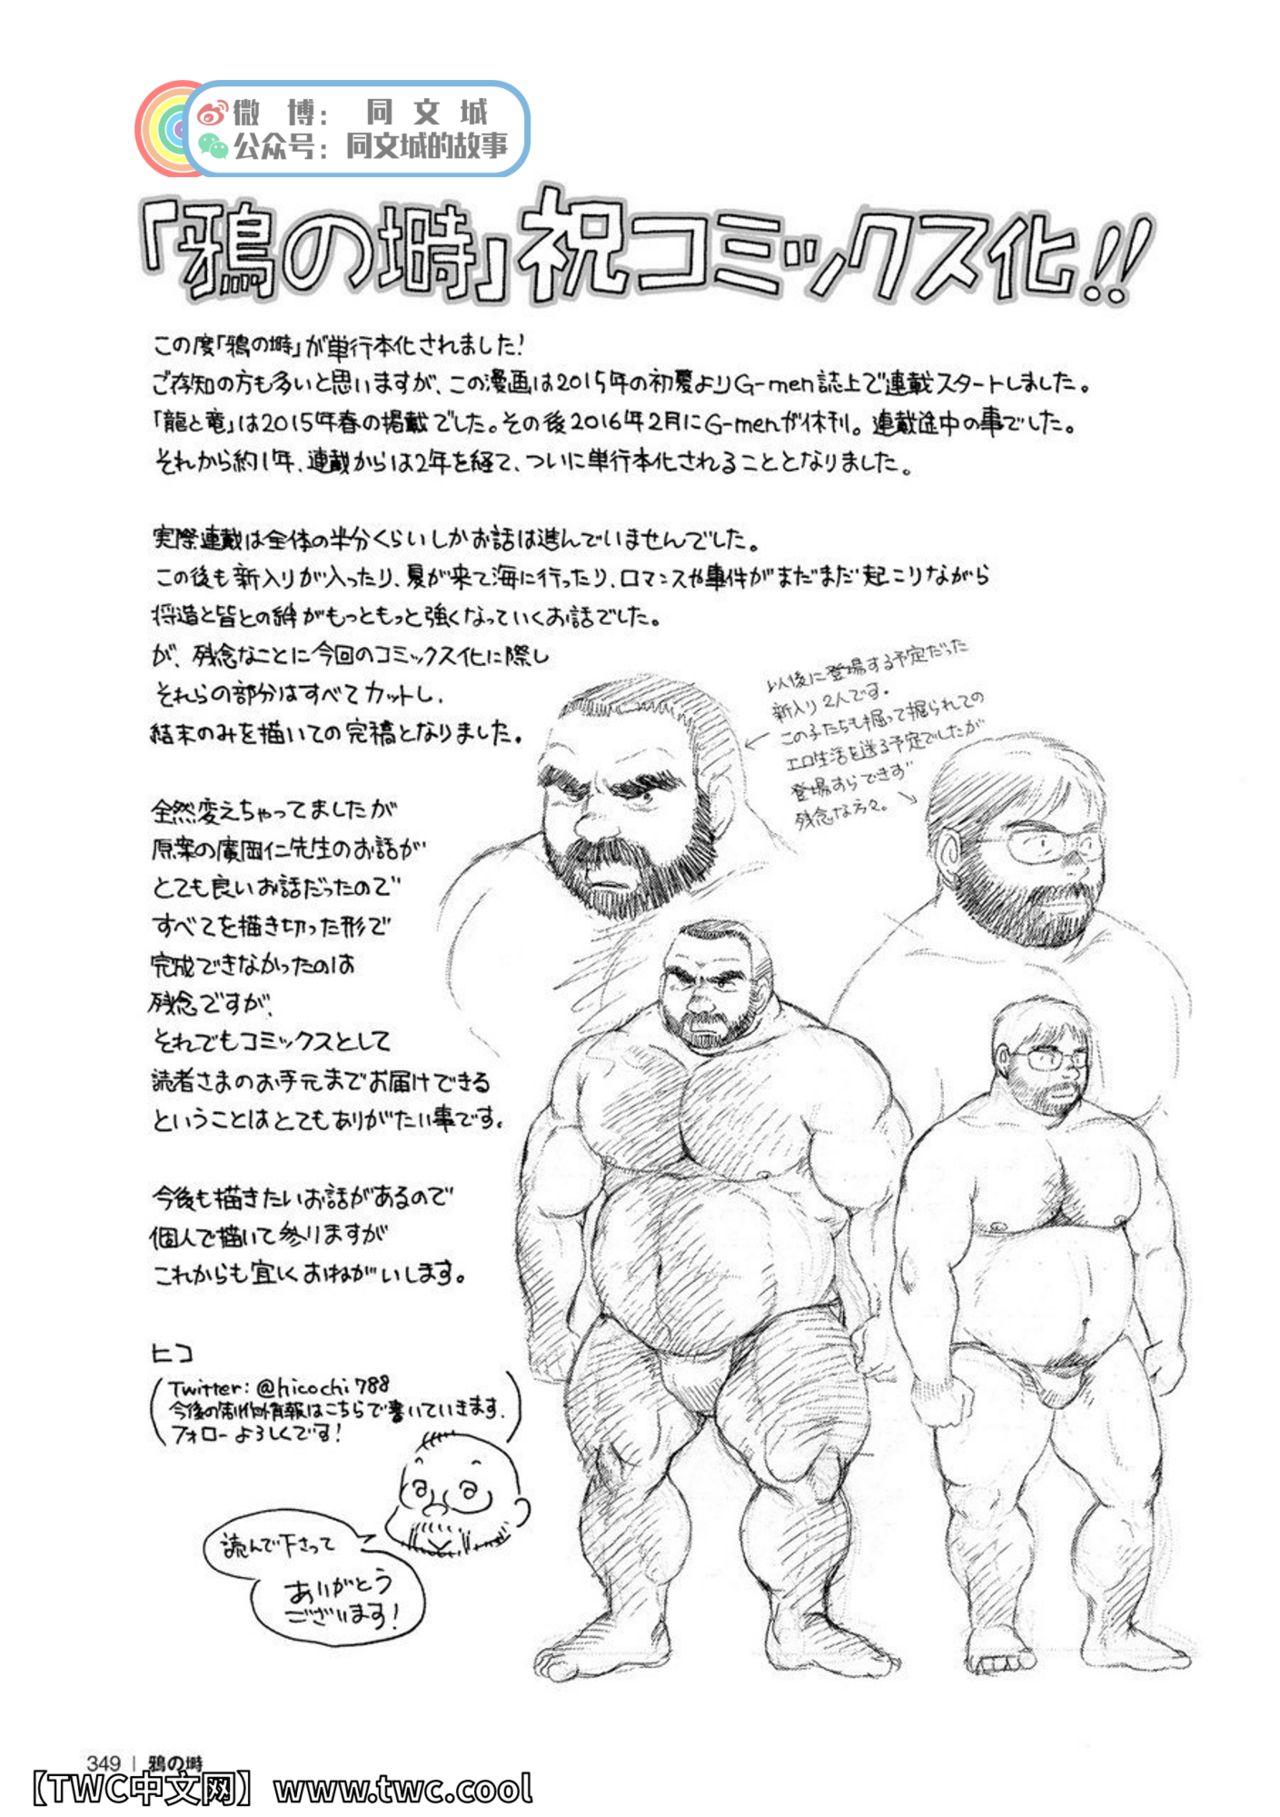 微 博： 同 文 城
公众号：同文城的故事
「鴉の塒」祝コミックス化!!
この度「鴉の塒」が単行本化されました!
ご存知の方も多いと思いますが、この漫画は2015年の初夏よりG-men誌上で連載スタートしました。
「龍と竜」は2015年春の掲載でした。その後2016年2月にG-menが休刊。連載途中の事でした。
それから約1年、連載からは2年を経て、ついに単行本化されることとなりました。
実際連載は全体の半分くらいしかお話は進んでいませんでした。
この後も新入りが入ったり、夏が来て海に行ったり、ロマンスや事件がまだまだ起こりながら
将造と皆との絆がもっともっと強くなっていくお話でした。
が、残念なことに今回のコミックス化に際し
それらの部分はすべてカットし、
結末のみを描いての完稿となりました。
以後に登場する予定だった
新入り2人です。
この子たちも掘って掘られての
エロ生活を送る予定でしたが
登場すらできず
残念な方々。
全然変えちゃってましたが
原案の廣岡仁先生のお話が
とても良いお話だったので
すべてを描き切った形で
完成できなかったのは
残念ですが、
それでもコミックスとして
読者さまのお手元までお届けできる
ということはとてもありがたい事です。
今後も描きたいお話があるので
個人で描いて参りますが
これからも宜しくおねがいします。
ヒコ
Twitter: @hicochi788
今後の制作情報はこちらで書いていきます。
フォローよろしくです!
読んで下さって
ありがとう
ございます!
349 | 鴉の塒
【TWC中文网】 www.twc.cool